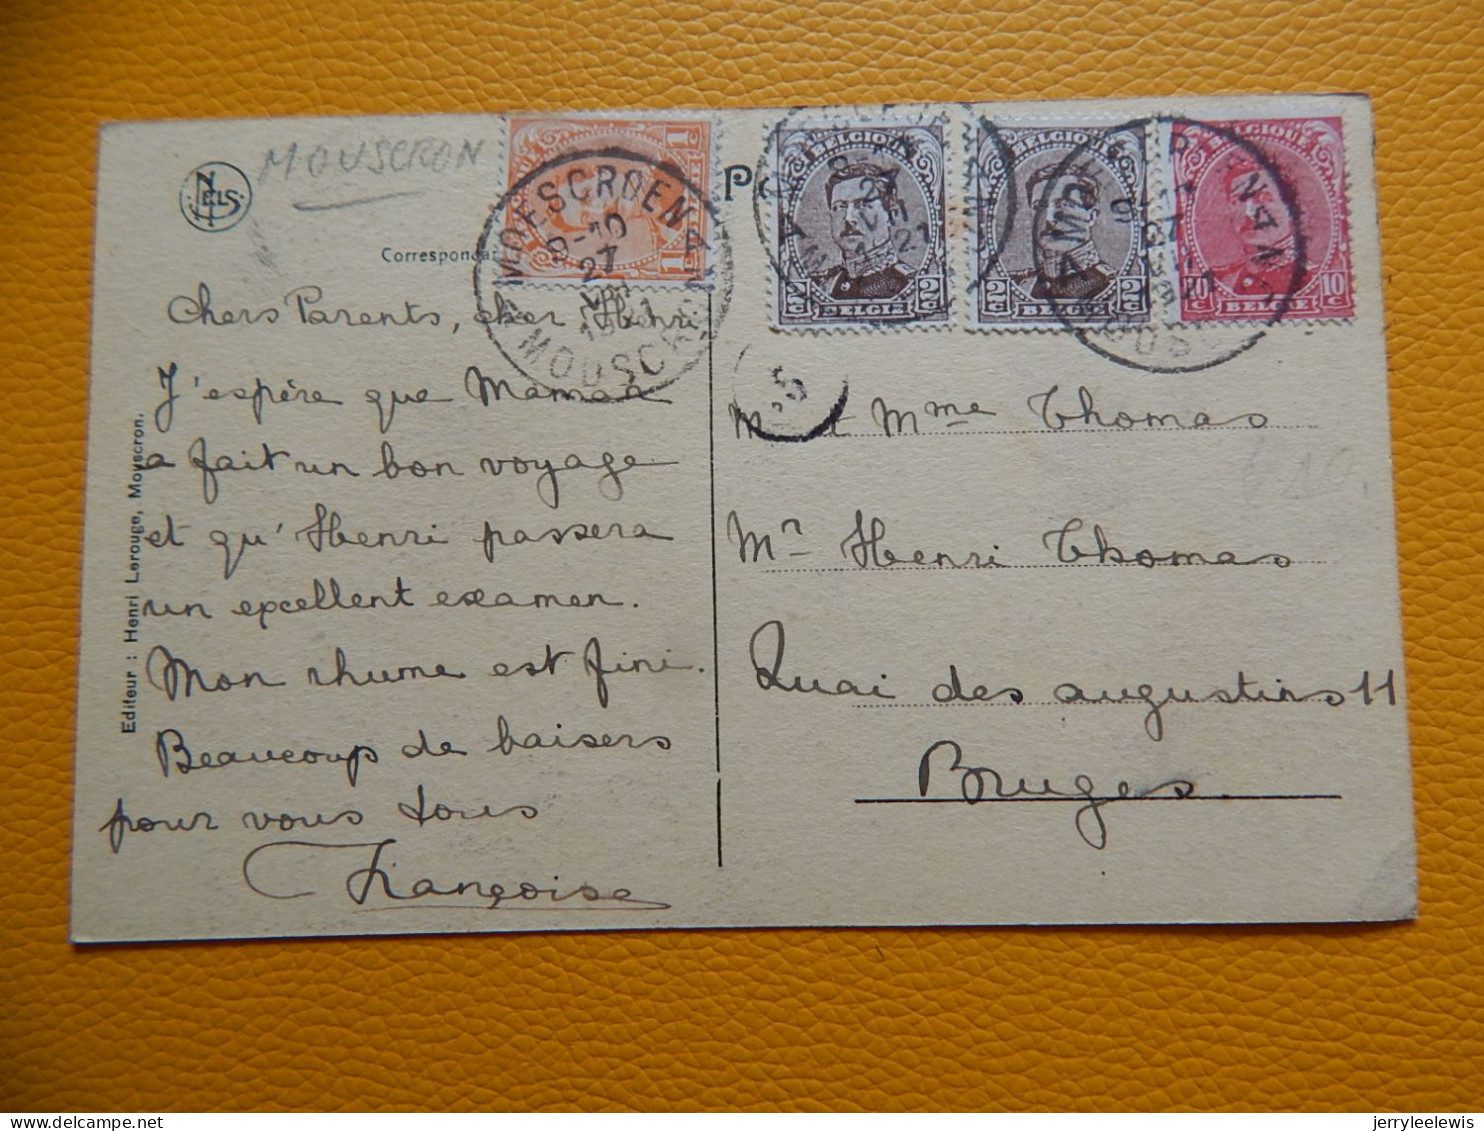 NELS
MOUSCRON
Correspondan
Chers Parents, cher Henri
J'espère que Maman
a fait un bon voyage
et qu'Henri passera
un excellent examen.
Mon rhume est fini.
Beaucoup de baisers
pour vous tous
Françoise
Editeur : Henri Lerouge, Mouscron.
1 1
MOESCROEN
9-10
27
VII
1921
MOUSCRON
BELGIQUE
2c 2c
BELGIE
BELGIQUE
2c 2c
BELGIE
BELGIQUE
10c 10c
BELGIE
5
Mr et Mme Thomas
Mr Henri Thomas
Quai des augustins 11
Bruges
jerryleelewis